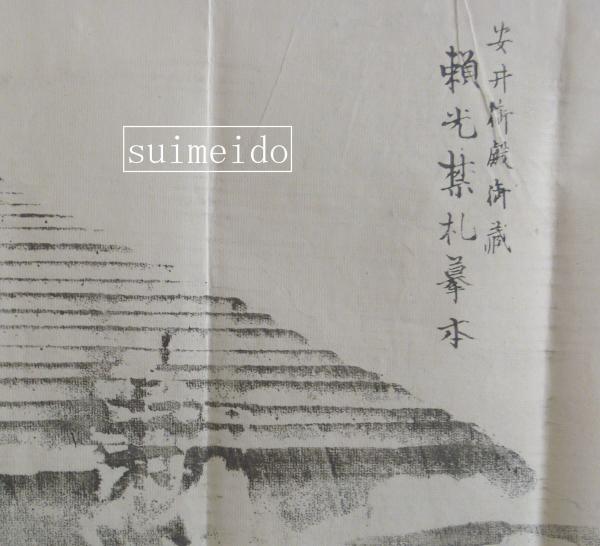 安井御殿御蔵
頼光禁札摹本
suimeido